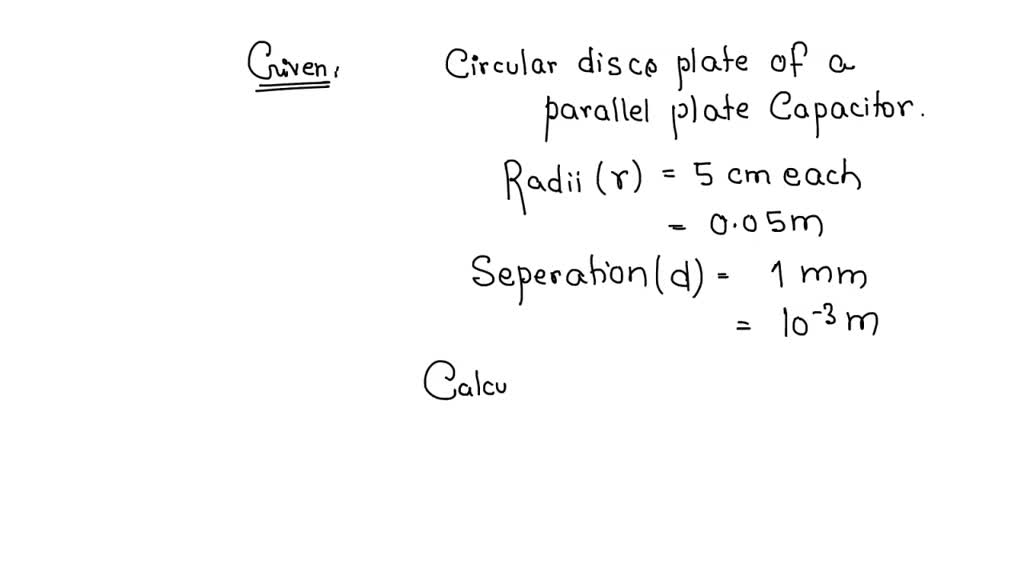 Given,
Circular disce plate of a
parallel plate Capacitor.
Radii (r) = 5 cm each
= 0.05m
Seperation (d) = 1 mm
= 10⁻³ m
Calcu